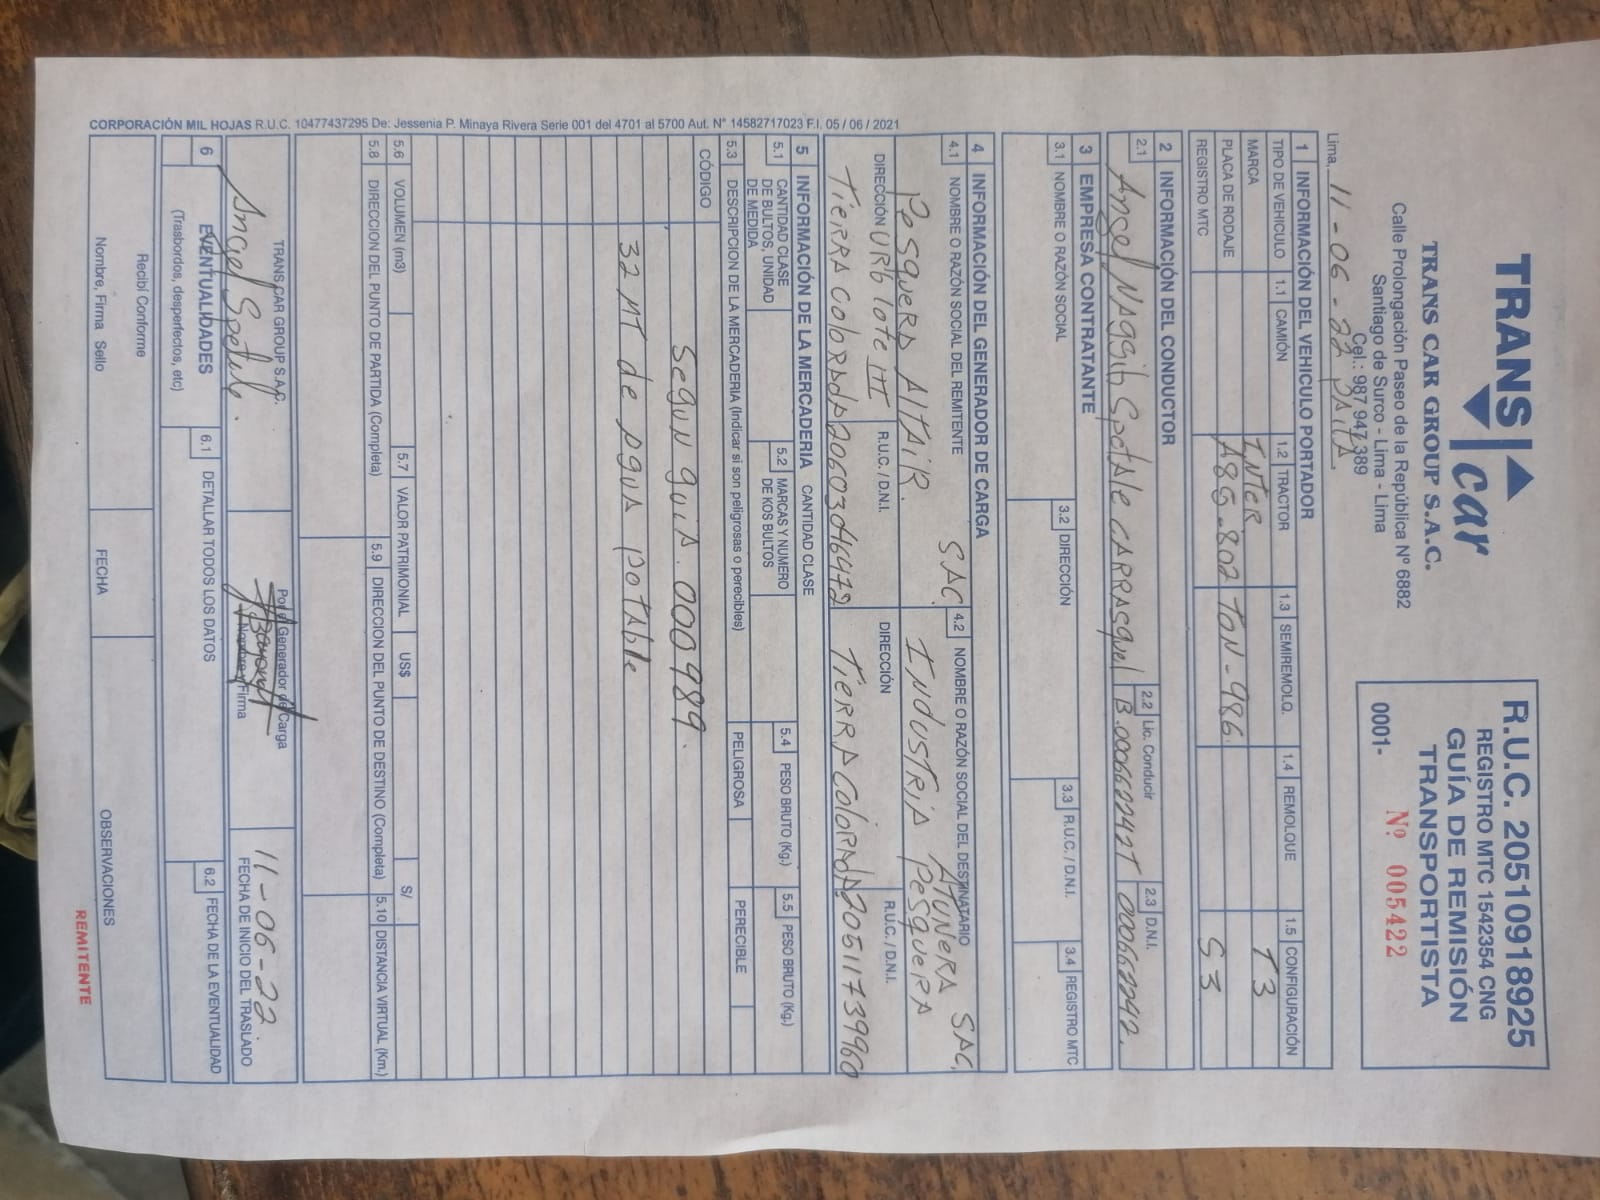 TRANS car
TRANS CAR GROUP S.A.C.
Calle Prolongación Paseo de la República Nº 6882
Santiago de Surco - Lima - Lima
Cel.: 987 947 389
R.U.C. 20510918925
REGISTRO MTC 1542354 CNG
GUÍA DE REMISIÓN
TRANSPORTISTA
0001- Nº 005422
Lima, 11-06-22 PAITA
1 INFORMACIÓN DEL VEHICULO PORTADOR
TIPO DE VEHICULO 1.1 CAMIÓN 1.2 TRACTOR 1.3 SEMIREMOLQ. 1.4 REMOLQUE 1.5 CONFIGURACIÓN
MARCA INTER T3
PLACA DE RODAJE A8G-802 TAN-986 S3
REGISTRO MTC
2 INFORMACIÓN DEL CONDUCTOR
2.1 Angel NAGGib SpetAle CARRASquel 2.2 Lic. Conducir 2.3 D.N.I.
3 EMPRESA CONTRATANTE
3.1 NOMBRE O RAZÓN SOCIAL 3.2 DIRECCIÓN 3.3 R.U.C. / D.N.I. 3.4 REGISTRO MTC
4 INFORMACIÓN DEL GENERADOR DE CARGA
4.1 NOMBRE O RAZÓN SOCIAL DEL REMITENTE 4.2 NOMBRE O RAZÓN SOCIAL DEL DESTINATARIO
PesqueRA AltAiR. SAC. INdustRiA AtuNeRA SAC.
PesqueRA
DIRECCIÓN URb lote III R.U.C. / D.N.I. DIRECCIÓN R.U.C. / D.N.I.
TieRRA ColoRAdA TieRRA ColoRAdA 20511739960
5 INFORMACIÓN DE LA MERCADERIA CANTIDAD CLASE
5.1 CANTIDAD CLASE DE BULTOS, UNIDAD DE MEDIDA 5.2 MARCAS Y NUMERO DE KOS BULTOS 5.4 PESO BRUTO (Kg.) 5.5 PESO BRUTO (Kg.)
5.3 DESCRIPCION DE LA MERCADERIA (Indicar si son peligrosas o perecibles) PELIGROSA PERECIBLE
CÓDIGO
SeguN guiA. 000989.
32 MT de Agua potAble
5.6 VOLUMEN (m3) 5.7 VALOR PATRIMONIAL US$ S/
5.8 DIRECCION DEL PUNTO DE PARTIDA (Completa) 5.9 DIRECCION DEL PUNTO DE DESTINO (Completa) 5.10 DISTANCIA VIRTUAL (Km.)
TRANS CAR GROUP S.A.C. Por el Generador de Carga 11-06-22
Angel Spetale. Nombre y Firma FECHA DE INICIO DEL TRASLADO
6 EVENTUALIDADES 6.1 DETALLAR TODOS LOS DATOS 6.2 FECHA DE LA EVENTUALIDAD
(Trasbordos, desperfectos, etc)
Recibí Conforme
Nombre, Firma Sello FECHA OBSERVACIONES
REMITENTE
CORPORACIÓN MIL HOJAS R.U.C. 10477437295 De: Jessenia P. Minaya Rivera Serie 001 del 4701 al 5700 Aut. N° 14582717023 F.I. 05 / 06 / 2021